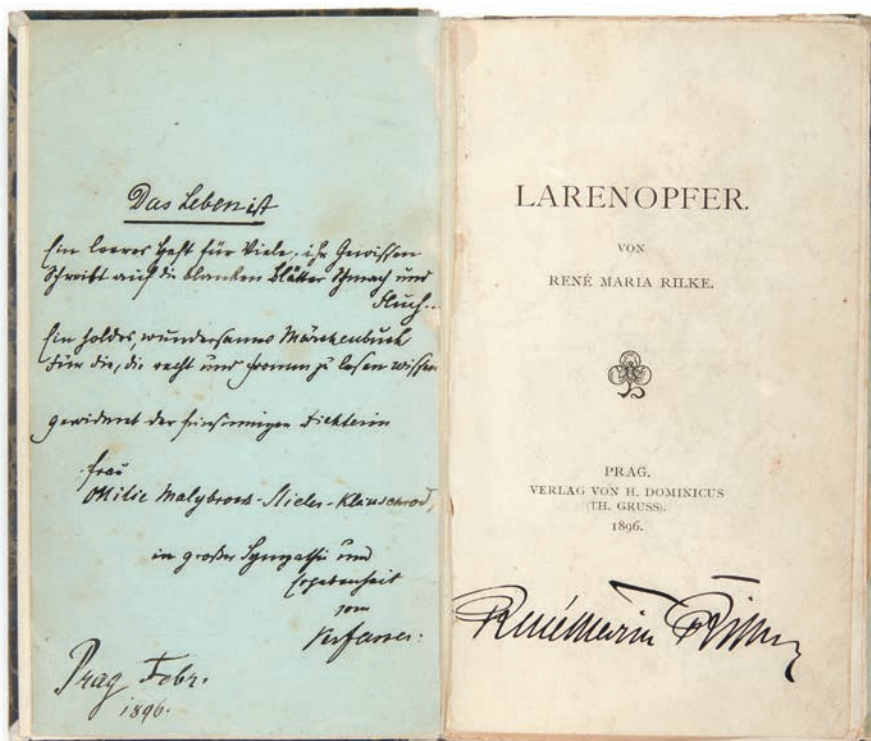 Das Leben ist
Ein leeres Heft für Viele; ihr Gewissen
Schreibt auf die blanken Blätter Schmach und
Fluch...
Ein holdes, wundersames Märchenbuch
Für die, die recht und fromm zu lesen wissen
gewidmet der feinsinnigen Dichterin
Frau
Ottilie Malybrock-Stieler-
in großer Sympathie und
Ergebenheit
vom
Verfasser.
Prag Febr.
1896.
LARENOPFER.
VON
RENÉ MARIA RILKE.
PRAG.
VERLAG VON H. DOMINICUS
(TH. GRUSS).
1896.
René Maria Rilke